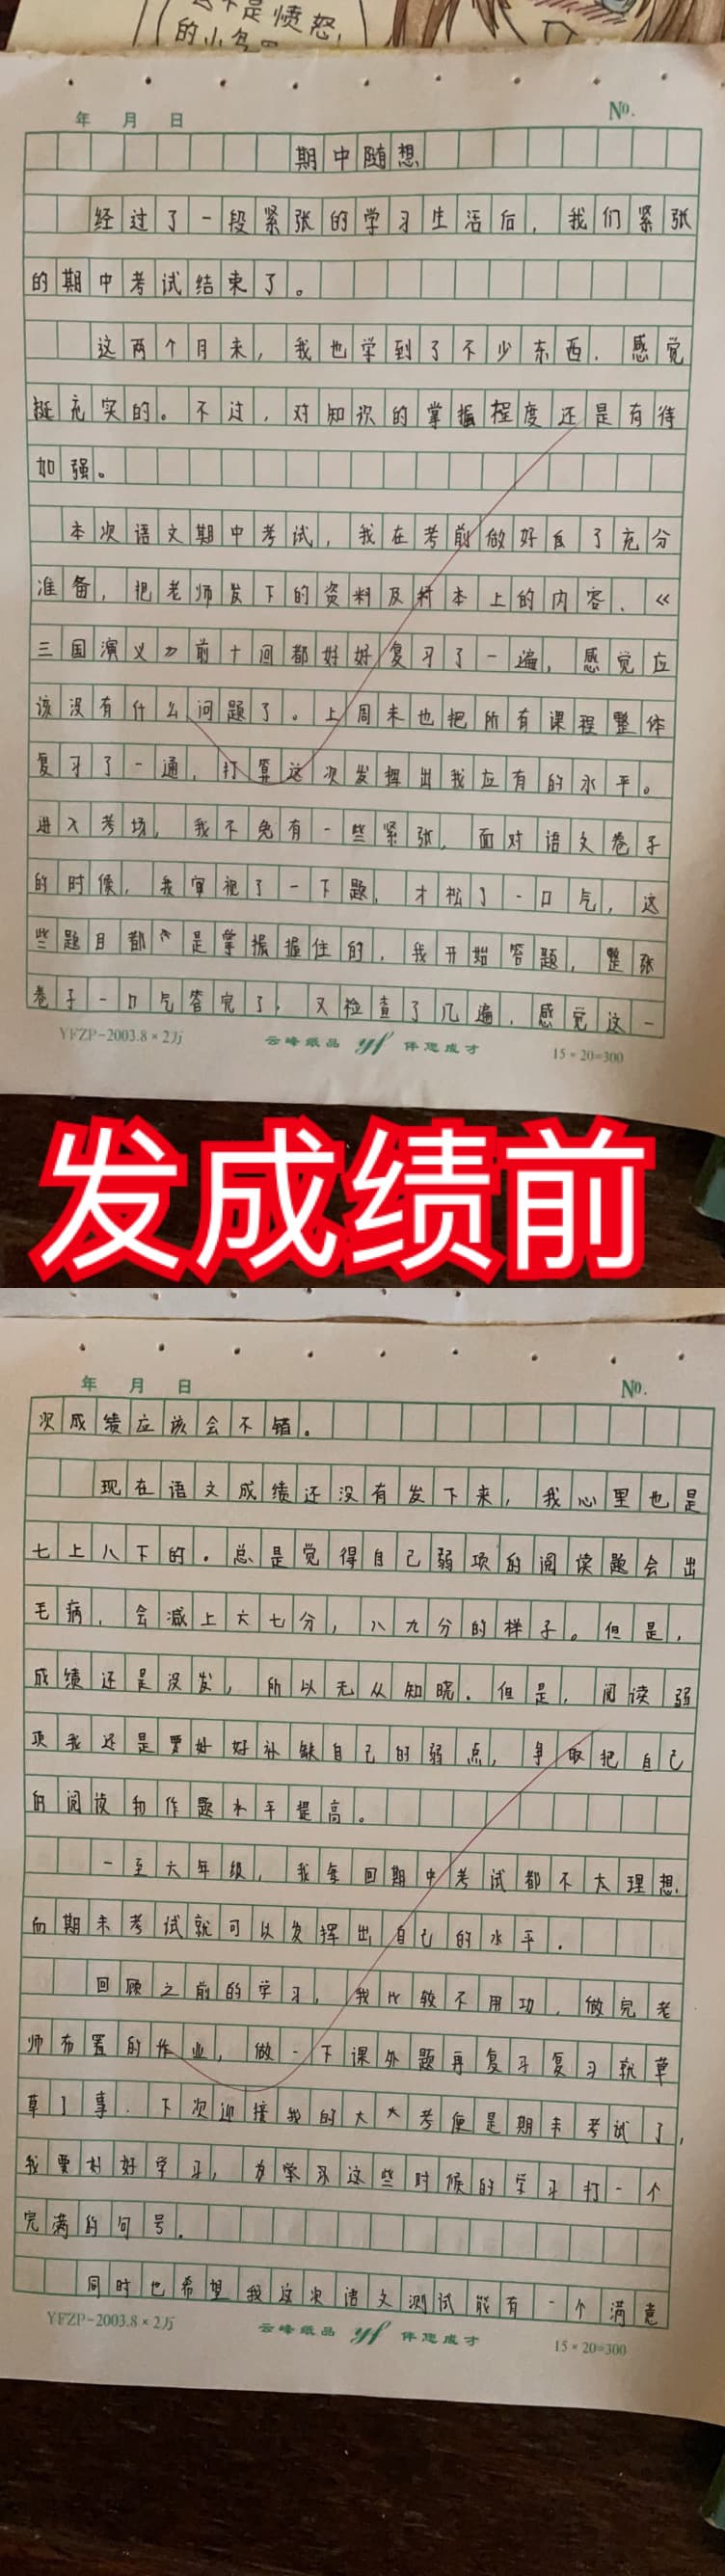 是愤怒!
的小
年 月 日 No.
期中随想
经过了一段紧张的学习生活后，我们紧张
的期中考试结束了。
这两个月来，我也学到了不少东西，感觉
挺充实的。不过，对知识的掌握程度还是有待
加强。
本次语文期中考试，我在考前做好了充分
准备，把老师发下的资料及村本上的内容、《
三国演义》前十回都好好复习了一遍，感觉应
该没有什么问题了。上周末也把所有课程整体
复习了一通，打算这次发挥出我应有的水平。
进入考场，我不免有一些紧张，面对语文卷子
的时候，我审视了一下题，才松了一口气，这
些题目都是掌握握住的，我开始答题，整张
卷子一口气答完了，又检查了几遍，感觉这一
YFZP-2003.8×2万 云峰纸品 yf 伴您成才 15×20=300
发成绩前
年 月 日 No.
次成绩应该会不错。
现在语文成绩还没有发下来，我心里也是
七上八下的。总是觉得自己弱项的阅读题会出
毛病，会减上六七分，八九分的样子。但是，
成绩还是没发，所以无从知晓。但是，阅读弱
项我还是要好好补缺自己的弱点，争取把自己
的阅读和作题水平提高。
一至六年级，我每回期中考试都不太理想，
而期末考试就可以发挥出自己的水平。
回顾之前的学习，我比较不用功，做完老
师布置的作业，做一下课外题再复习复习就草
草了事。下次迎接我的大大考便是期末考试了，
我要好好学习，为学习这些时候的学习打一个
完满的句号。
同时也希望我这次语文测试能有一个满意
YFZP-2003.8×2万 云峰纸品 yf 伴您成才 15×20=300